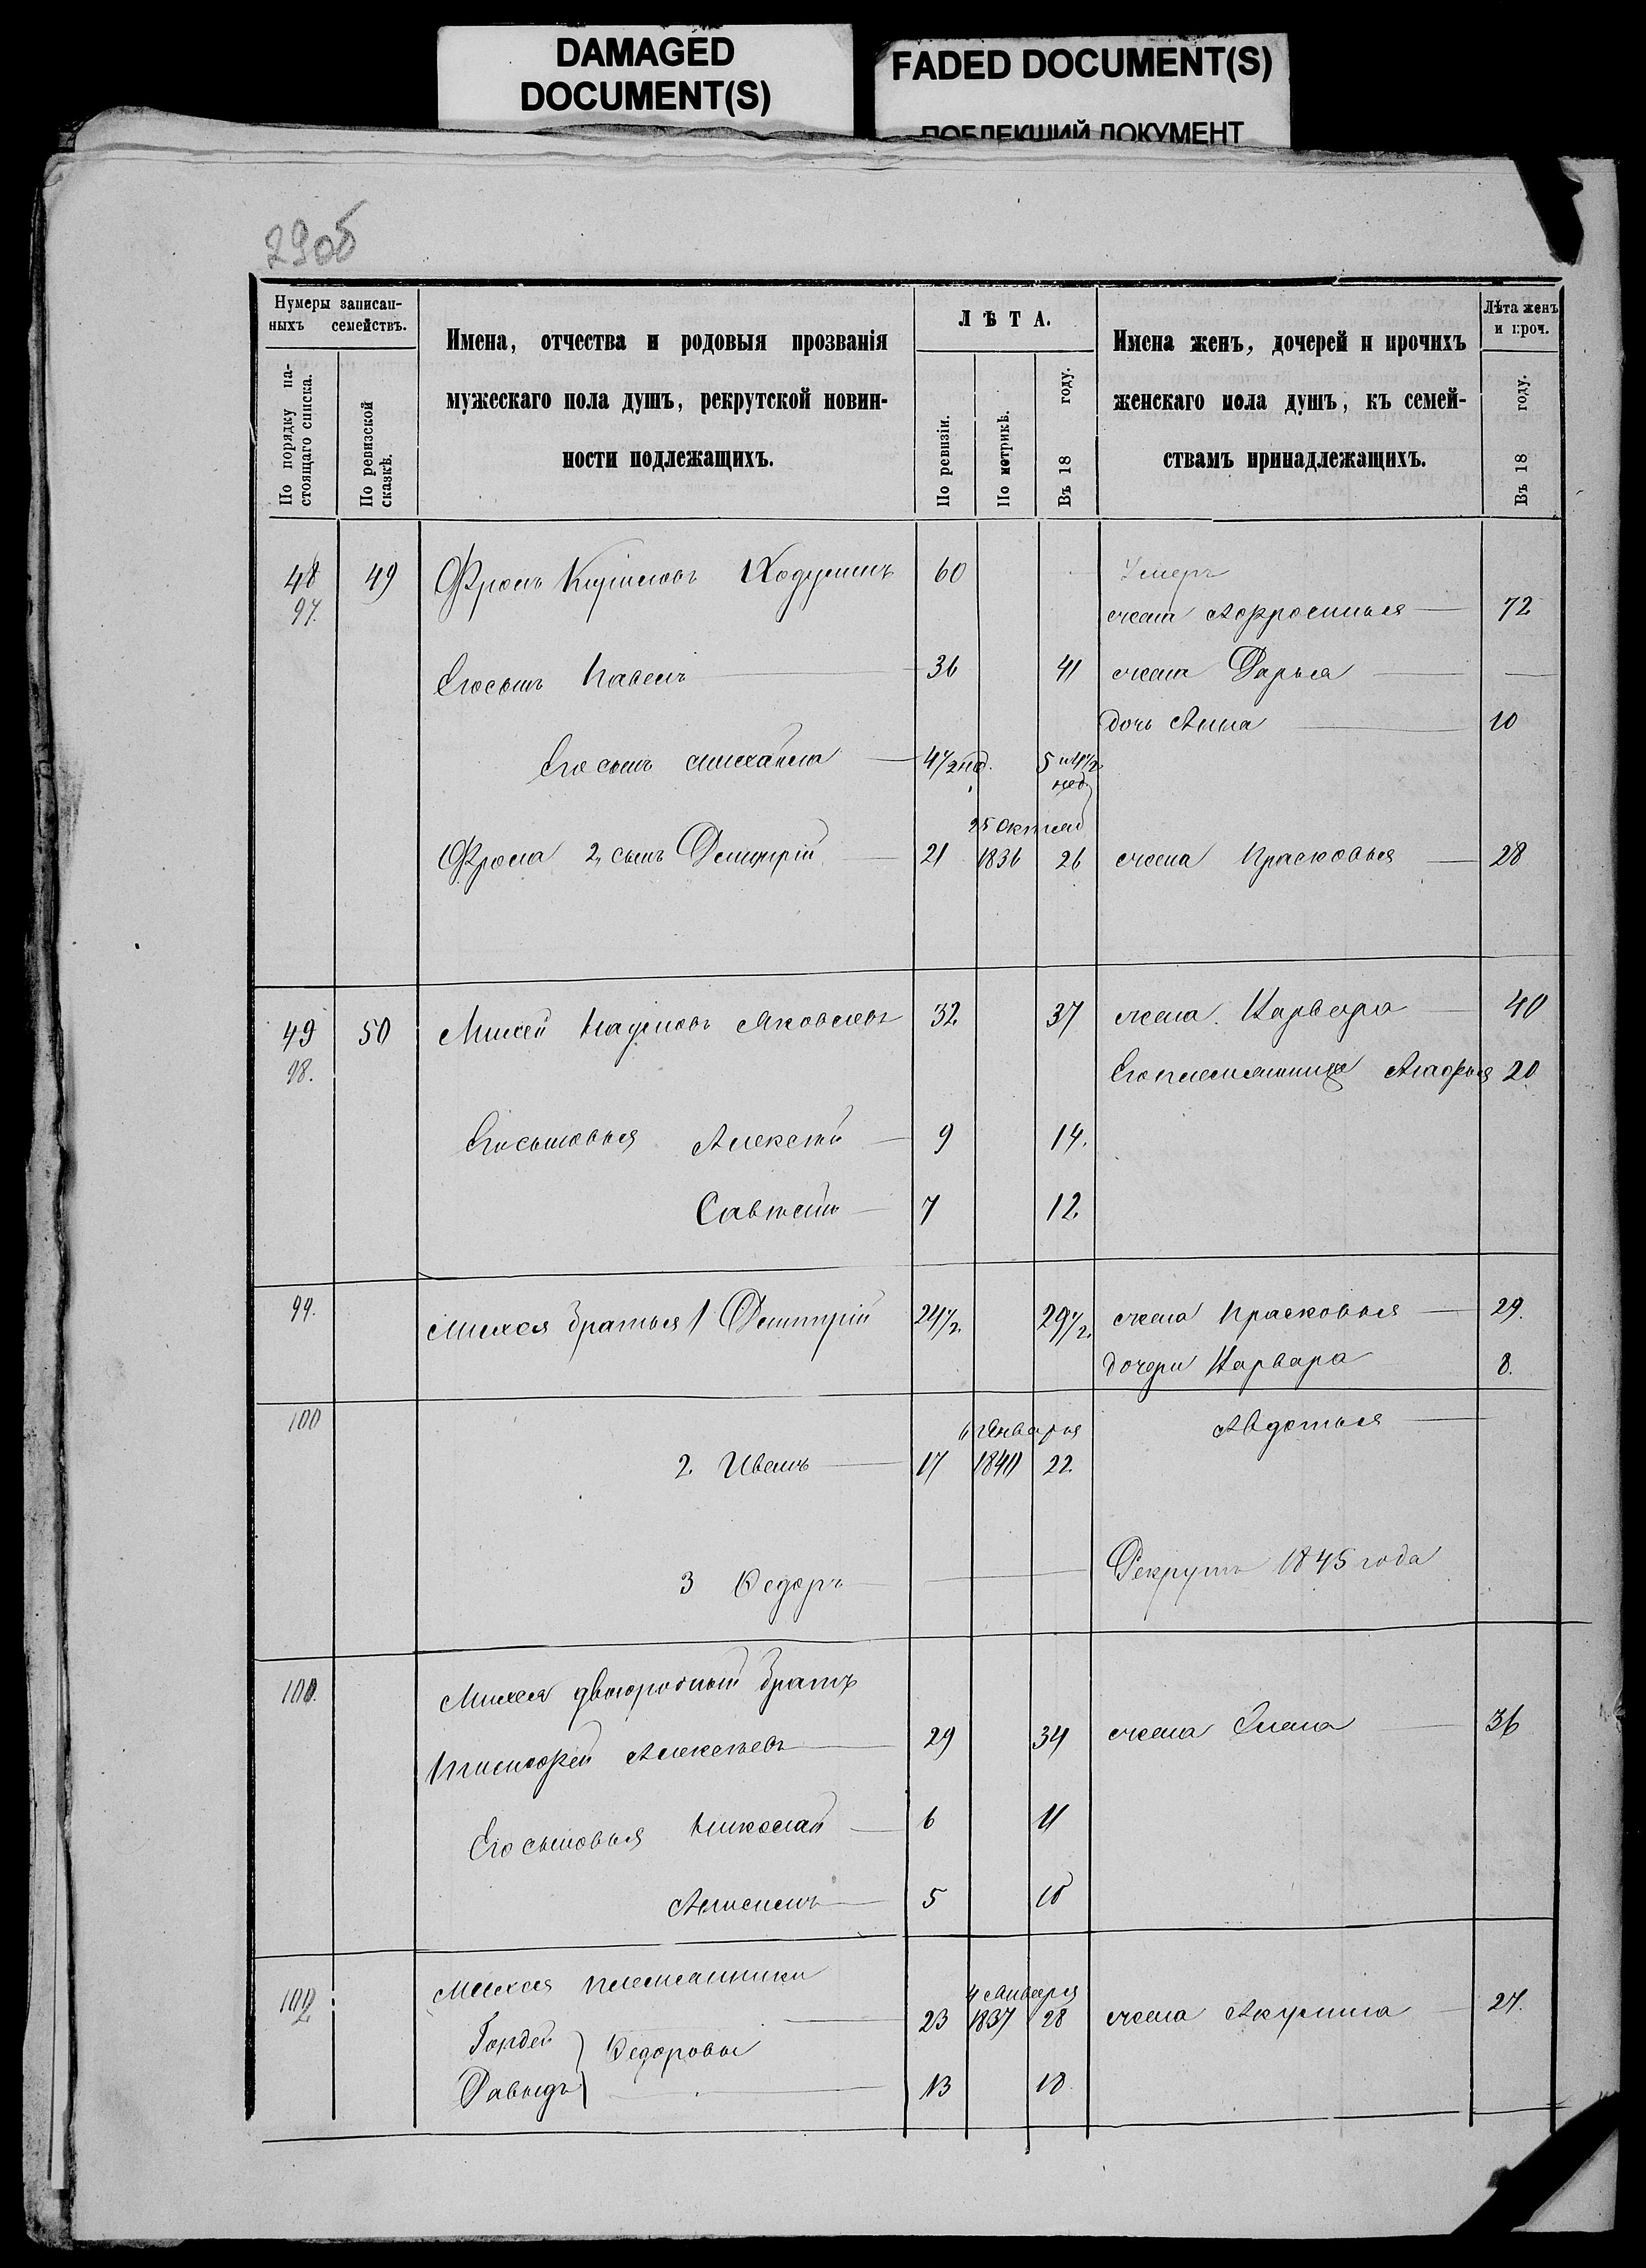 DAMAGED
DOCUMENT(S)
FADED DOCUMENT(S)
ПОБЛЕКШИЙ ДОКУМЕНТ
29об
Нумеры записан-
ныхъ семействъ.
По порядку на-
стоящаго списка.
По ревизской
сказкѣ.
Имена, отчества и родовыя прозванія
мужескаго пола душъ, рекрутской повин-
ности подлежащихъ.
ЛѢТА.
По ревизіи.
По метрикѣ.
Въ 18 году.
Имена женъ, дочерей и прочихъ
женскаго пола душъ, къ семей-
ствамъ принадлежащихъ.
Лѣта женъ
и проч.
Въ 18 году.
48 49 Фролъ 60 Умеръ
97. жена Афросинья 72
Его сынъ Павелъ 36 41 жена Дарья
дочь Анна 10
Его сынъ Михайла 4 1/2 нед. 5 и 4 1/2 нед.
25 Октяб
Фрола 2, сынъ Дмитрій 21 1836 26 жена Прасковья 28
49 50 Михей Наумовъ Яковлевъ 32 37 жена Варвара 40
98. Его племянница Агафья 20
Его сыновья Алексѣй 9 14.
Савелій 7 12
99. Михея братья 1 Дмитрій 24 1/2 29 1/2 жена Прасковья 29.
дочери Варвара 8.
100 Авдотья
6 Января
2 Иванъ 17 1840 22
3 Федоръ Рекрутъ 1845 года
Михея двоюродный братъ
Алексѣевъ 29 34 жена Елена 36
Его сыновья Николай 6 11
5 10
102 Михея племянники
4 Января
Гордей 23 1837 28 жена Акулина 27.
Федоровы
Давыдъ 13 18